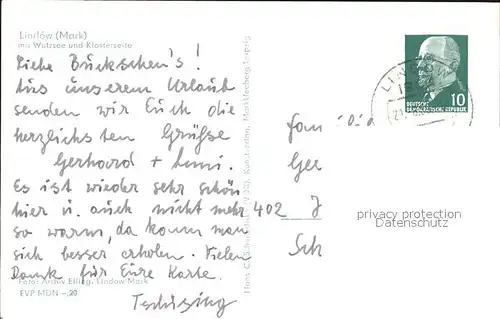 Lindow (Mark)
mit Wutzsee und Klosterseite
Liebe Bückschen's!
Aus unserem Urlaub
senden wir Euch die
herzlichsten Grüße
Gerhard +
Es ist wieder sehr schön
hier u. auch nicht mehr
so warm, da kann man
sich besser erholen. Vielen
Dank für Eure Karte.
Foto: Archiv Elfleg. Lindow Mark
EVP MDN -,20
DEUTSCHE
DEMOKRATISCHE REPUBLIK
10
LINDOW
21
Fam
Ger
402
Sch
privacy protection
Datenschutz